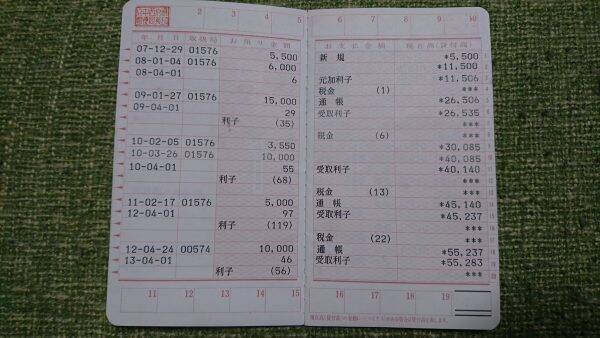 2 3 4 5
6 7 8 9 10
年月日 取扱局 お預り金額 お支払金額 現在高(貸付高)
07-12-29 01576 5,500 新規 *5,500
08-01-04 01576 6,000 *11,500
08-04-01 6 元加利子 *11,506
税金 (1) ***
09-01-27 01576 15,000 通帳 *26,506
09-04-01 29 受取利子 *26,535
利子 (35) ***
税金 (6) ***
10-02-05 01576 3,550 *30,085
10-03-26 01576 10,000 *40,085
10-04-01 55 受取利子 *40,140
利子 (68) ***
税金 (13) ***
11-02-17 01576 5,000 通帳 *45,140
12-04-01 97 受取利子 *45,237
利子 (119) ***
税金 (22) ***
12-04-24 00574 10,000 通帳 *55,237
13-04-01 46 受取利子 *55,283
利子 (56) ***
11 12 13 14 15
16 17 18 19